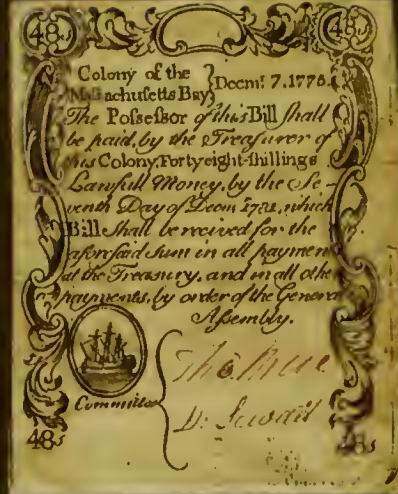 48s 48s
Colony of the } Decmr. 7.1775.
Massachusetts Bay
The Possessor of this Bill shall
be paid, by the Treasurer of
this Colony, Forty eight-shillings
Lawfull Money, by the Se-
venth Day of Decm 1781, which
Bill shall be received for the
aforesaid sum in all paymen
at the Treasury, and in all othe
payments, by order of the Genera
Assembly.
Committee
D: Sewall
48s 48s